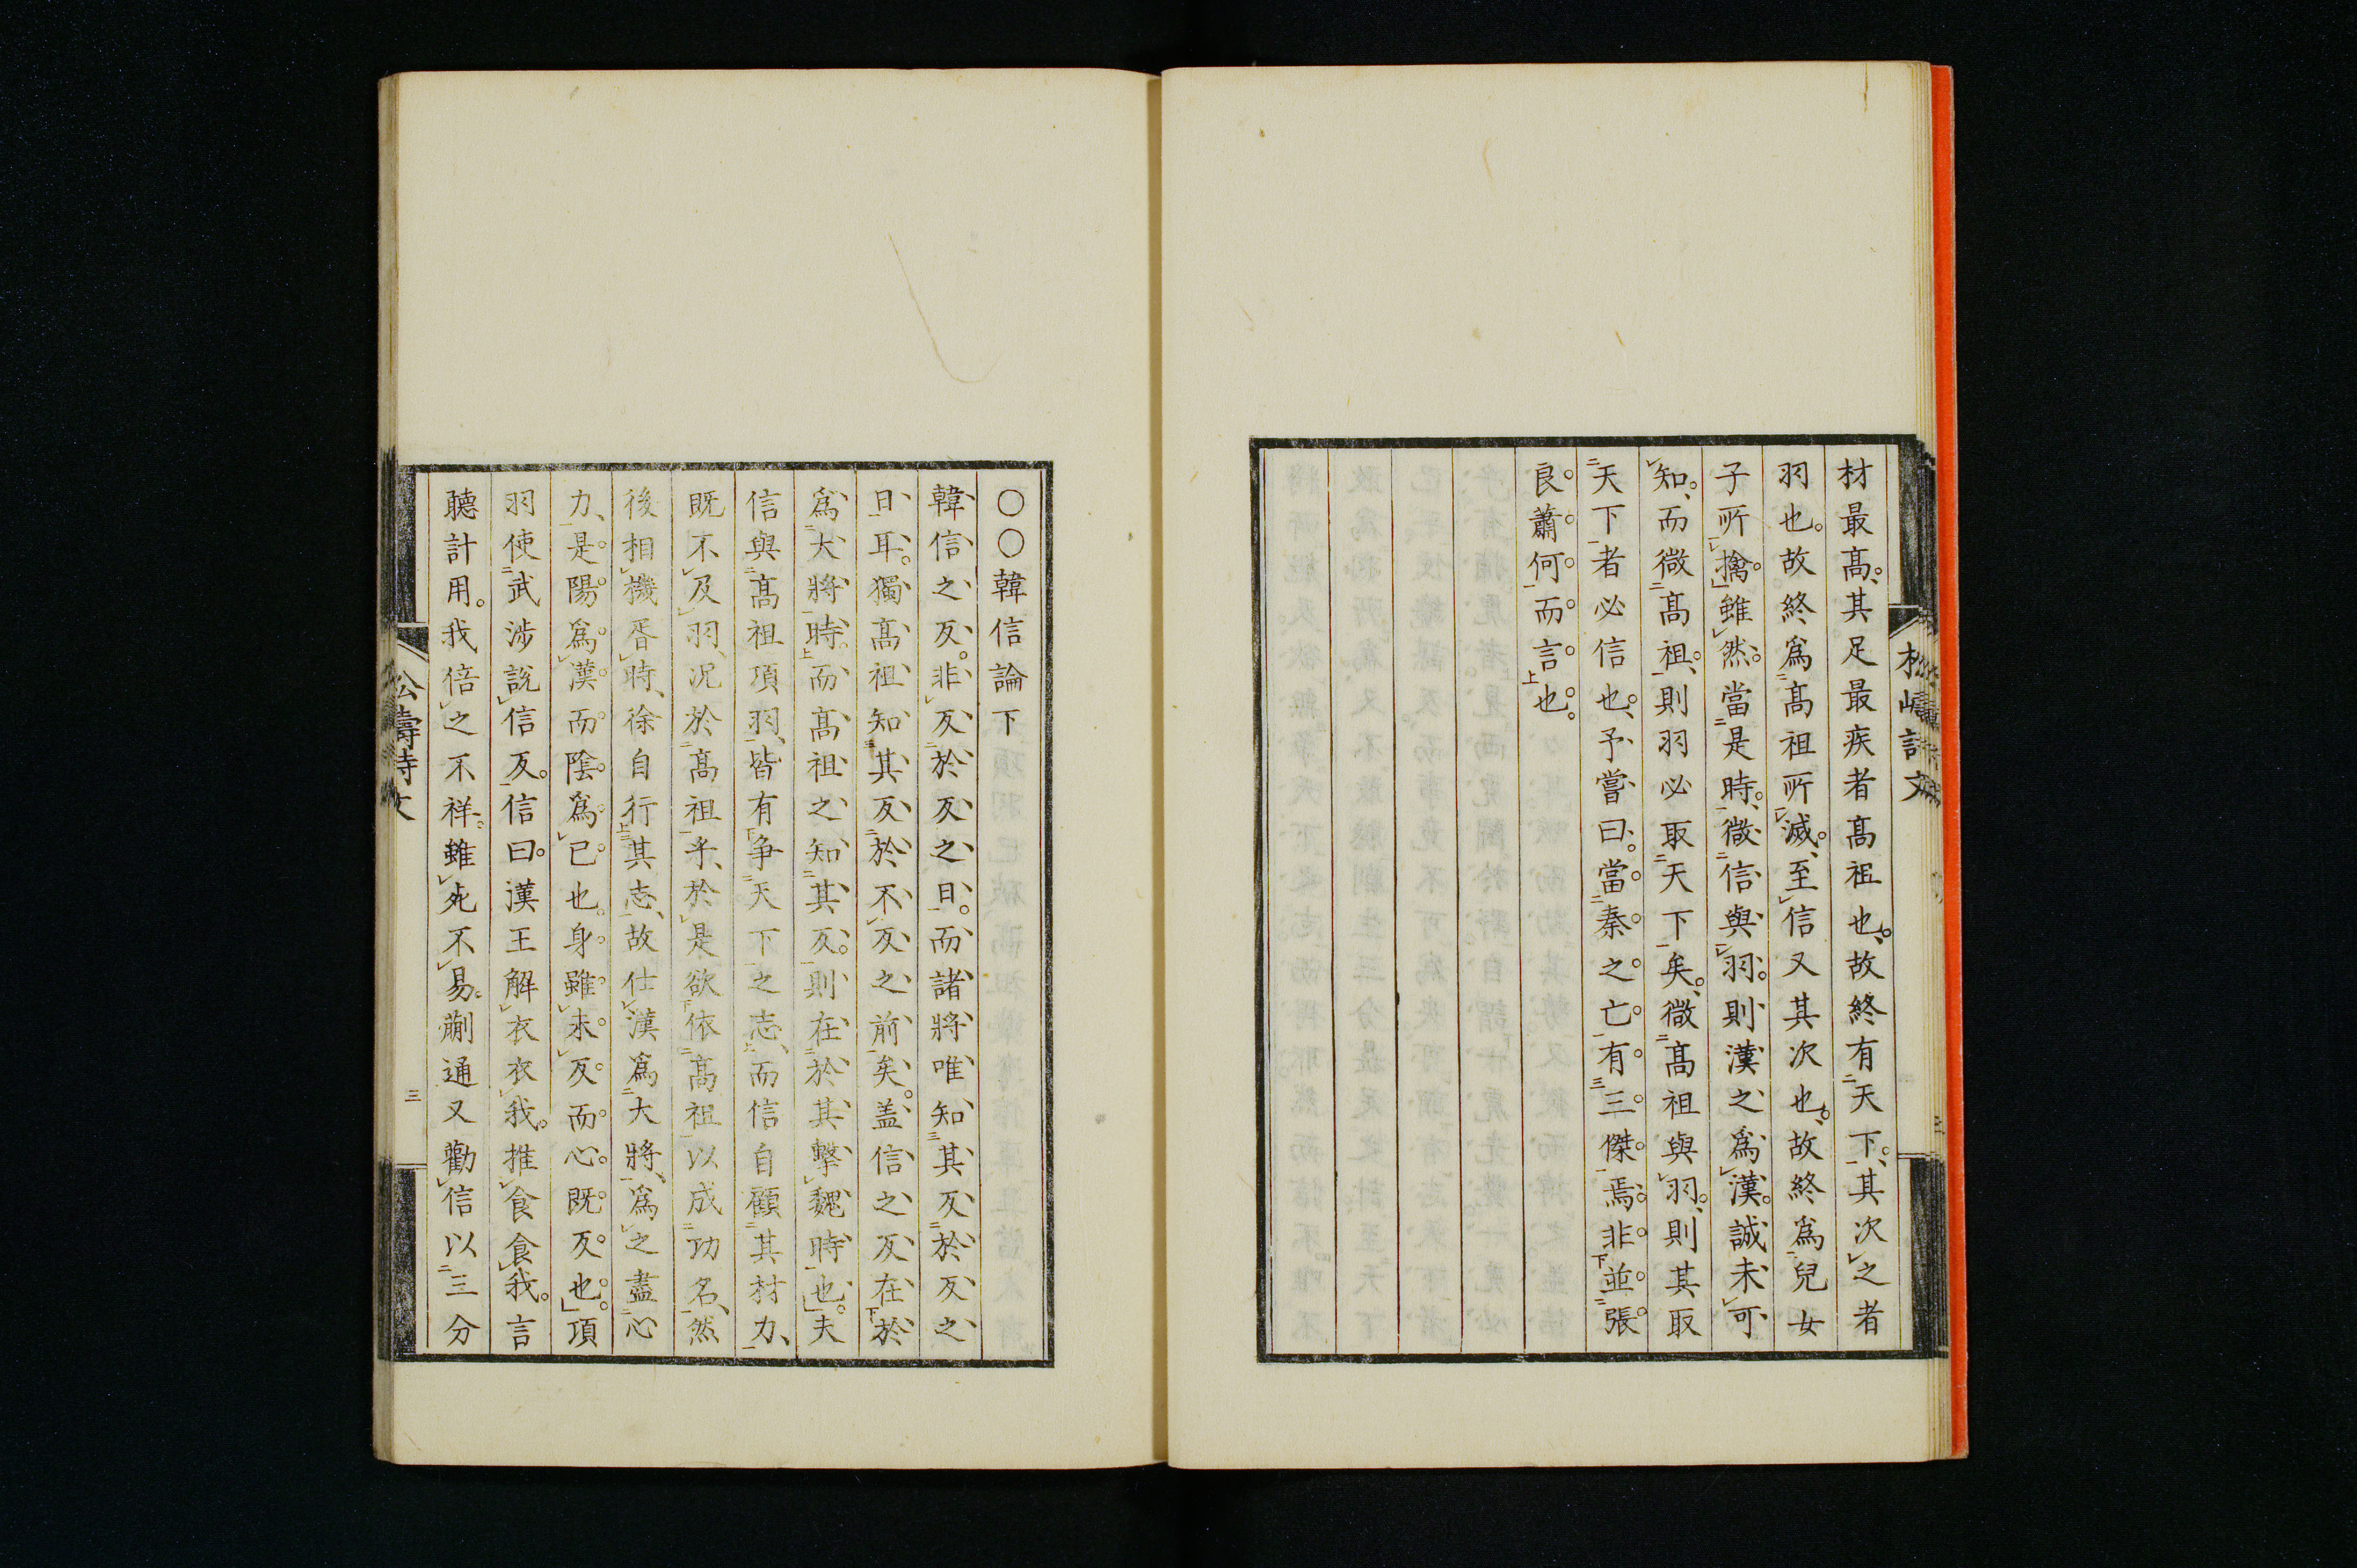 材最高其足最疾者高祖也故終有天下其次之者
羽也故終爲高祖所滅至信又其次也故終爲兒女
子所擒雖然當是時微信與羽則漢之爲漢誠未可
知而微高祖則羽必取天下矣微高祖與羽則其取
天下者必信也予嘗曰當秦之亡有三傑焉非並張
良蕭何而言也
〇〇韓信論下
韓信之反非反於反之日而諸將唯知其反於反之
日耳獨高祖知其反於不反之前矣盖信之反在於
爲大將時而高祖之知其反則在於其擊魏時也夫
信與高祖項羽皆有争天下之志而信自顧其材力
既不及羽況於高祖乎於是欲依高祖以成功名然
後相機胥時徐自行其志故仕漢爲大將爲之盡心
力是陽爲漢而陰爲己也身雖未反而心既反也項
羽使武涉說信反信曰漢王解衣衣我推食食我言
聽計用我倍之不祥雖死不易蒯通又勸信以三分
三